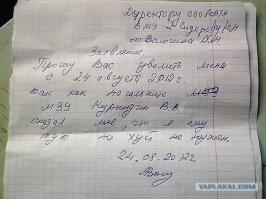 Директору ООО "СВТМ
ВМУ 2 Сидорову С.Н
от Волошина Д.Н
Заявление
Прошу Вас уволить меня
с 24 августа 2012г.
так как начальник МЗУ
МЗУ Курындин В.В.
сказал мне, что я ему
тут на хуй не нужен.
24.08.2012г.
YAPLAKAL.COM